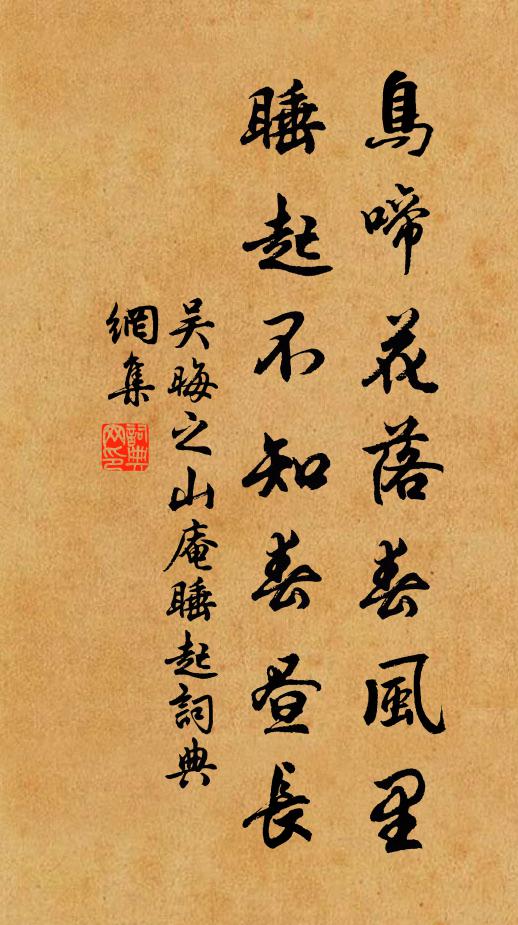 鳥啼花落春風里
睡起不知春昼長
吴晦之山庵睡起詞典
網集
詞典網印